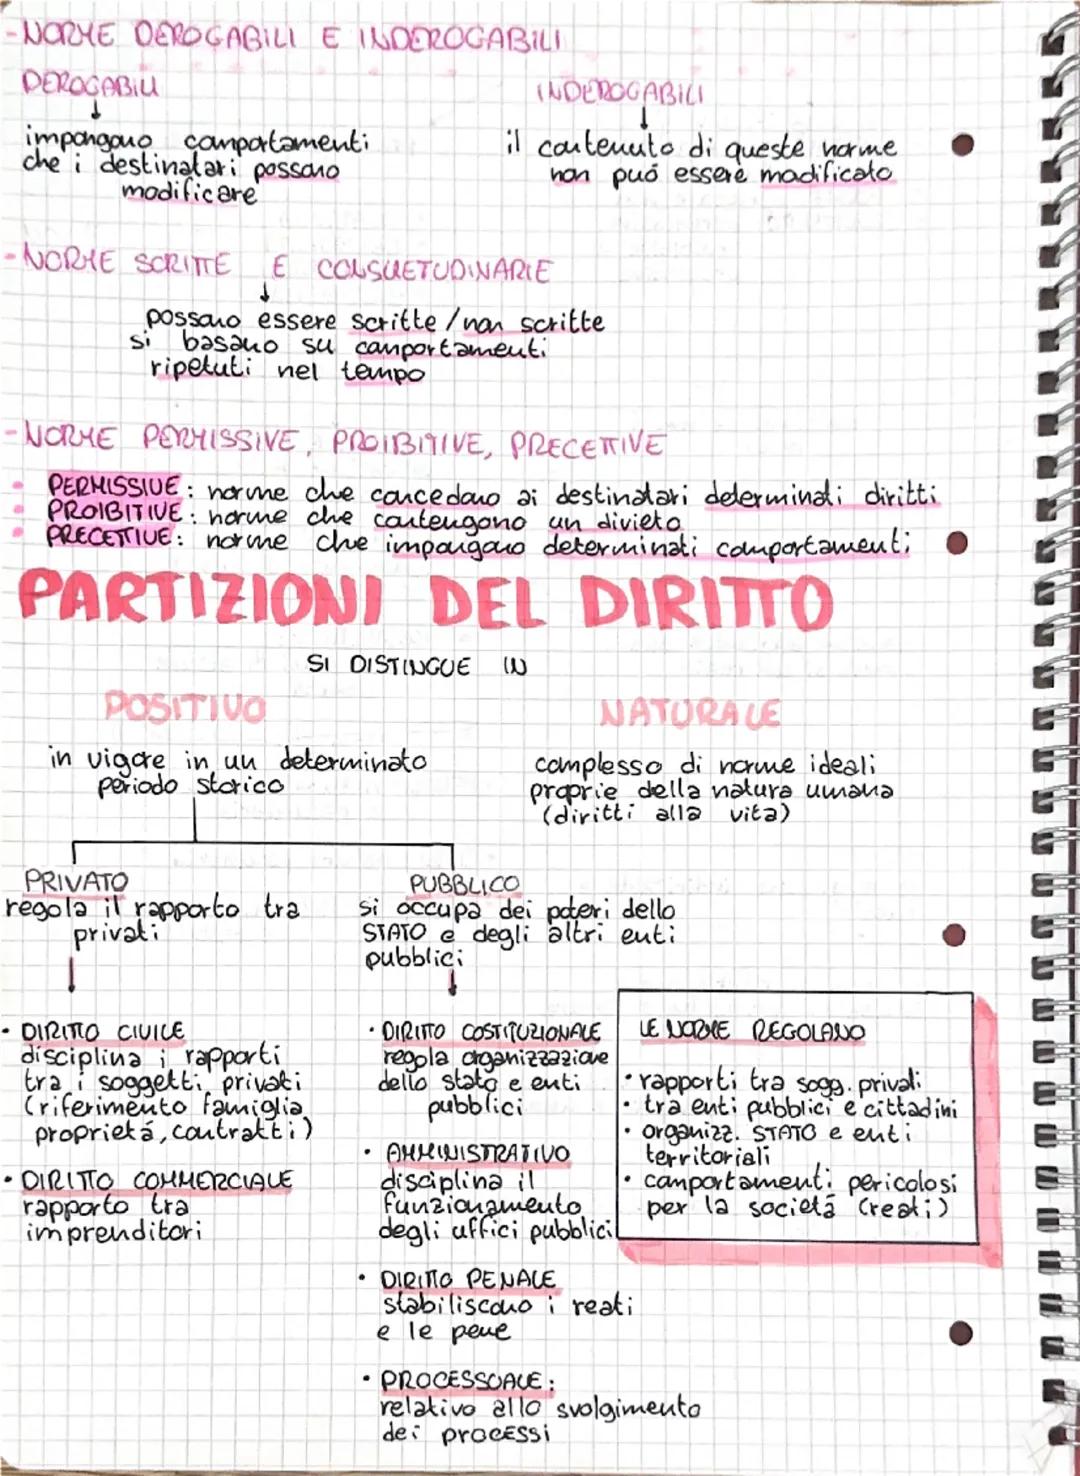 -NORME DEROGABILI E INDEROGABILI
DEROGABILI
impongono comportamenti
che i destinatari possono
modificare
INDEROGABILI
il contenuto di queste norme
non puó essere modificato
-NORME SCRITTE E CONSUETUDINARIE
possono essere scritte/non scritte
si basano su comportamenti
ripetuti nel tempo
-NORME PERMISSIVE, PROIBITIVE, PRECETTIVE
• PERMISSIVE: norme che concedono ai destinatari determinati diritti
• PROIBITIVE: norme che contengono un divieto
• PRECETTIVE: norme che impongono determinati comportamenti
PARTIZIONI DEL DIRITTO
SI DISTINGUE IN
POSITIVO
in vigore in un determinato
periodo storico
NATURALE
complesso di norme ideali
proprie della natura umana
(diritti alla vita)
PRIVATO
regola il rapporto tra
privati
PUBBLICO
si occupa dei poteri dello
STATO e degli altri enti
pubblici
• DIRITTO CIVILE
disciplina i rapporti
tra i soggetti privati
(riferimento famiglia,
proprietá, contratti)
• DIRITTO COMMERCIALE
rapporto tra
imprenditori
• DIRITTO COSTITUZIONALE
regola organizzazione
dello stato e enti
pubblici
• AMMINISTRATIVO
disciplina il
funzionamento
degli uffici pubblici
• DIRITTO PENALE
stabiliscono i reati
e le pene
• PROCESSUALE:
relativo allo svolgimento
dei processi
LE NORME REGOLANO
• rapporti tra sogg. privati
• tra enti pubblici e cittadini
• organizz. STATO e enti
territoriali
• comportamenti pericolosi
per la societá (reati)